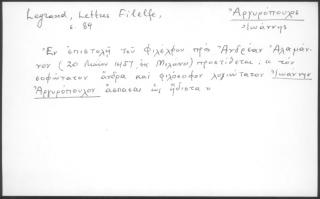 Legrand, Lettres Filelfe, Ἀργυρόπουλος
s. 89 Ἰωάννης
Ἐν ἐπιστολῇ τοῦ φιλέλφου πρὸς Ἀνδρέαν Ἀλαμάν-
νον (20 Μαΐου 1457, ἐκ Μιλάνου) προστίθεται: « τὸν
σοφώτατον ἄνδρα καὶ φιλόσοφον λογιώτατον Ἰωάννην
Ἀργυρόπουλον ἄσπασαι ὡς ἥδιστα »